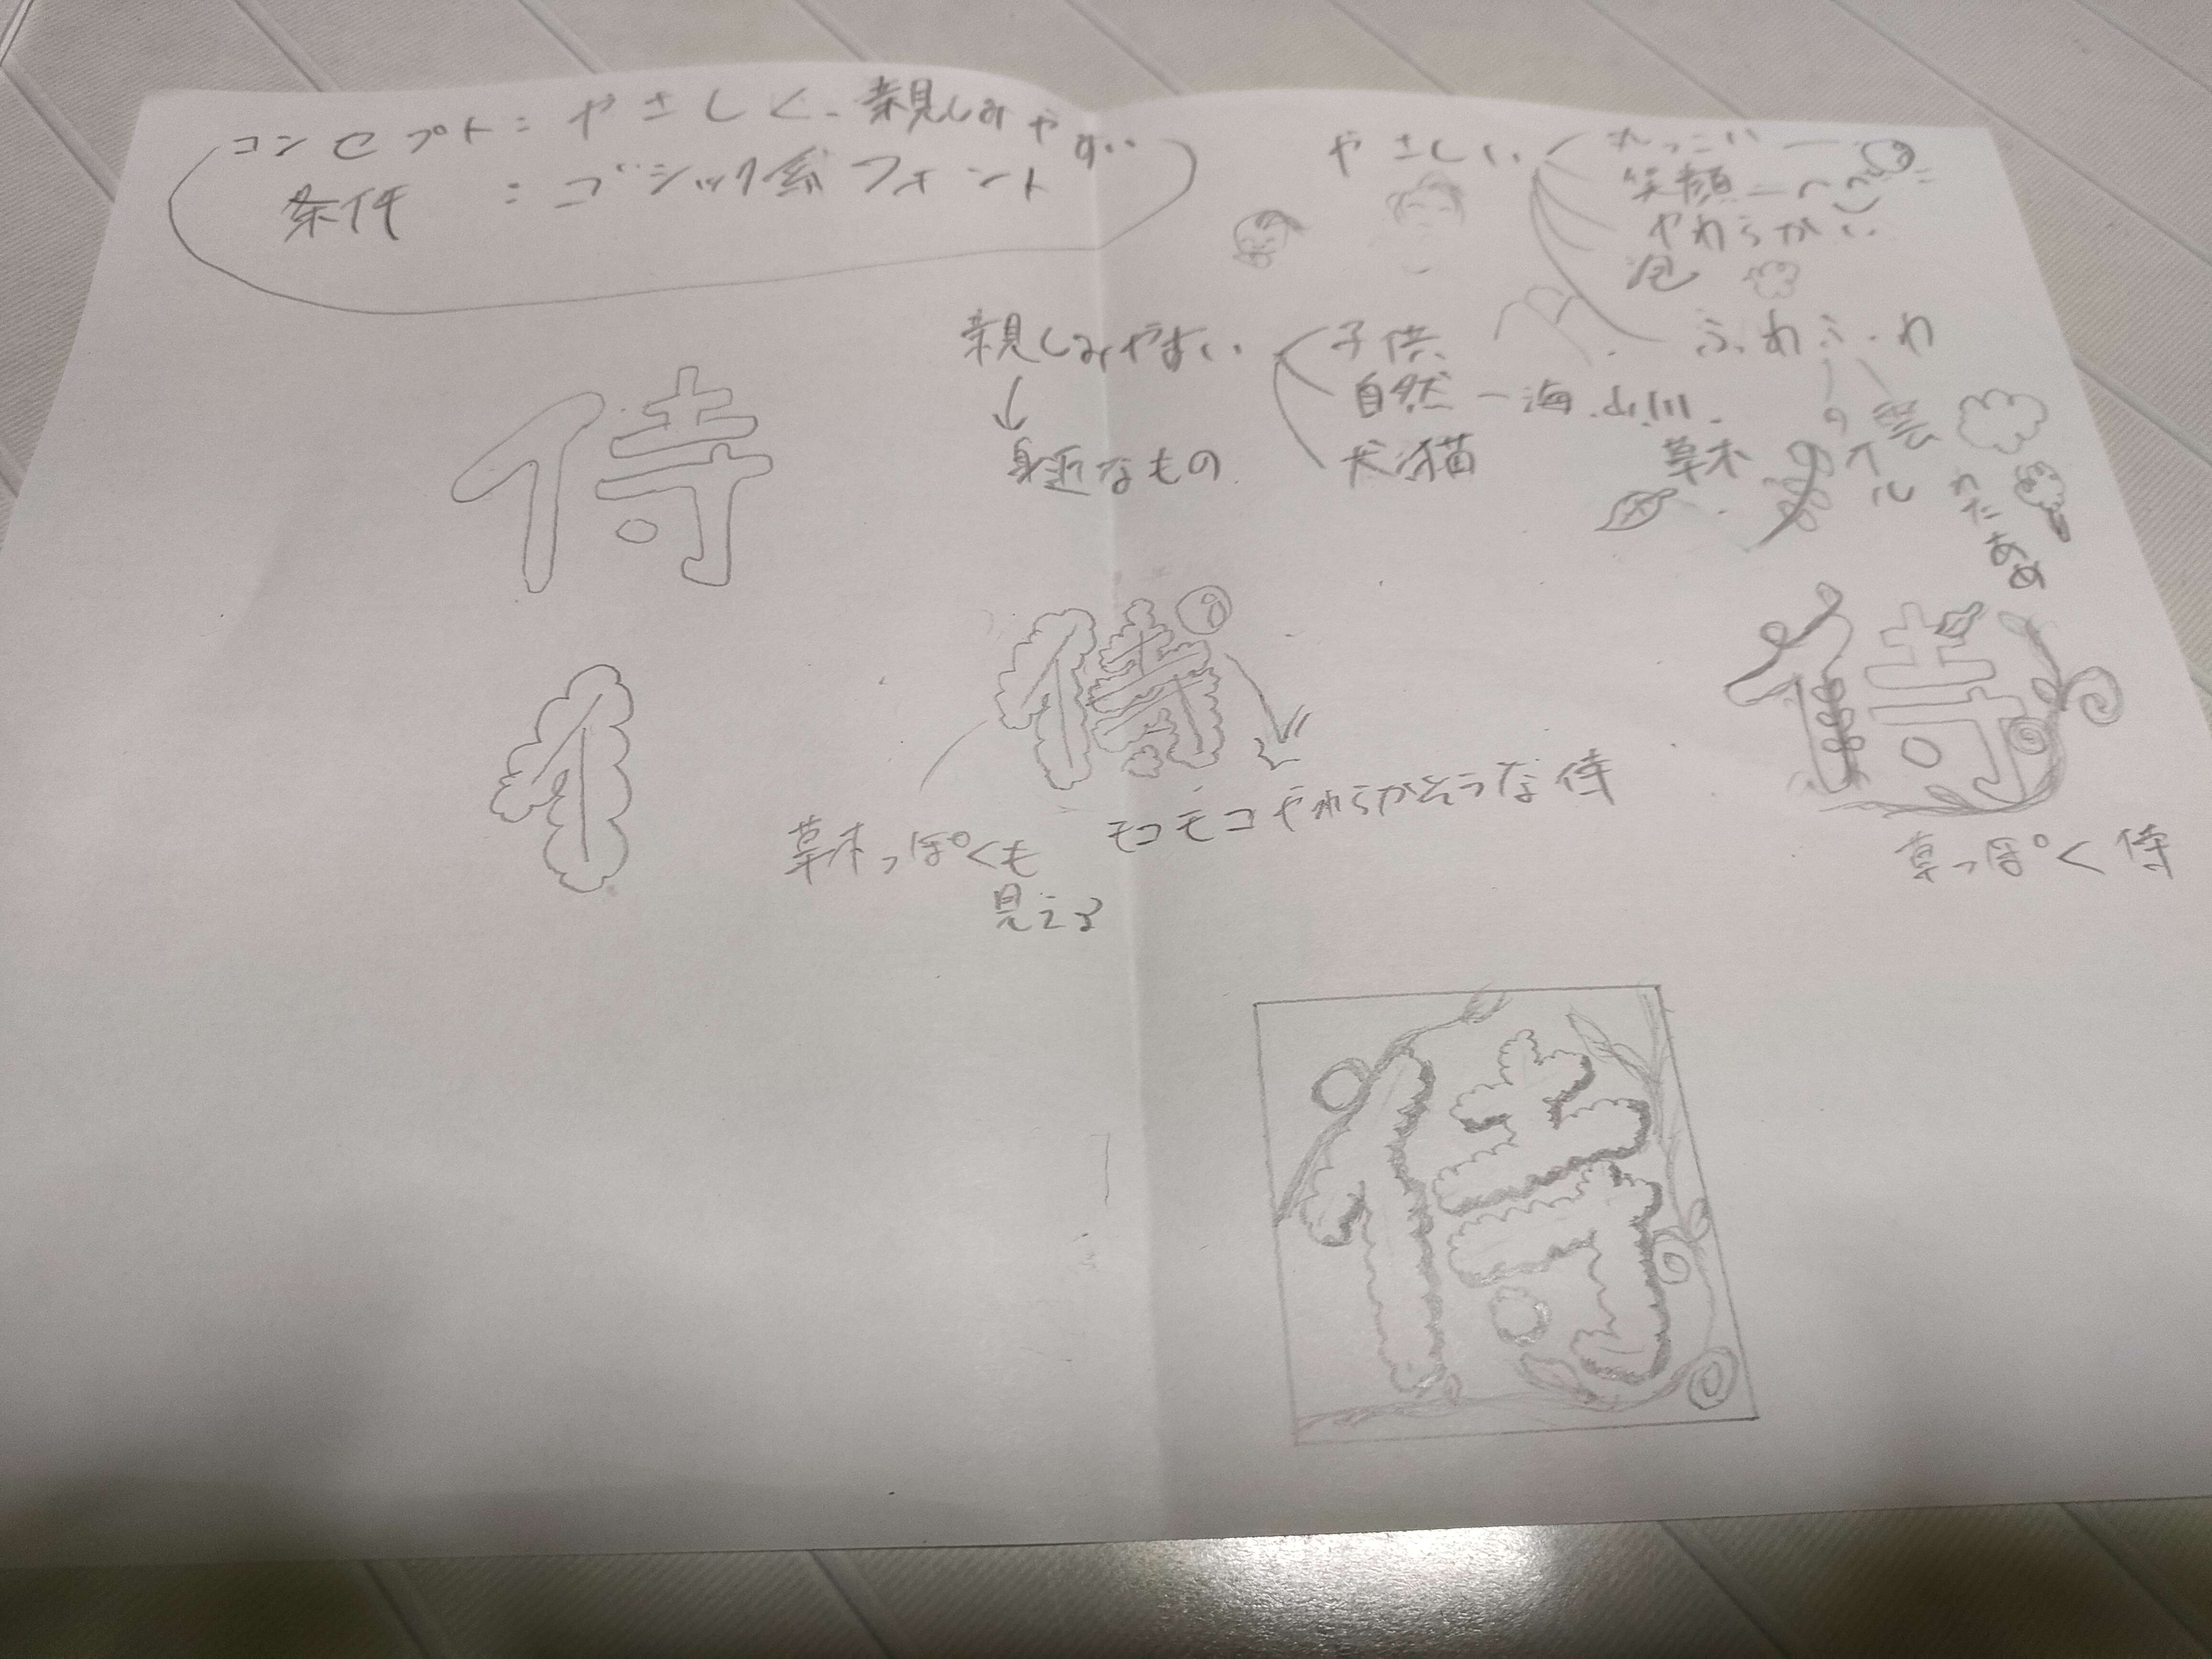 コンセプト：やさしく、親しみやすい
条件　：ゴシック系フォント
やさしい
笑顔
やわらかい
泡
ふわふわ
雲
わたあめ
親しみやすい
↓
身近なもの
子供
自然－海.山.川.
草木
犬.猫
侍
イ
侍
草木っぽくも
見える
モコモコやわらかそうな侍
侍
草っぽく侍
侍